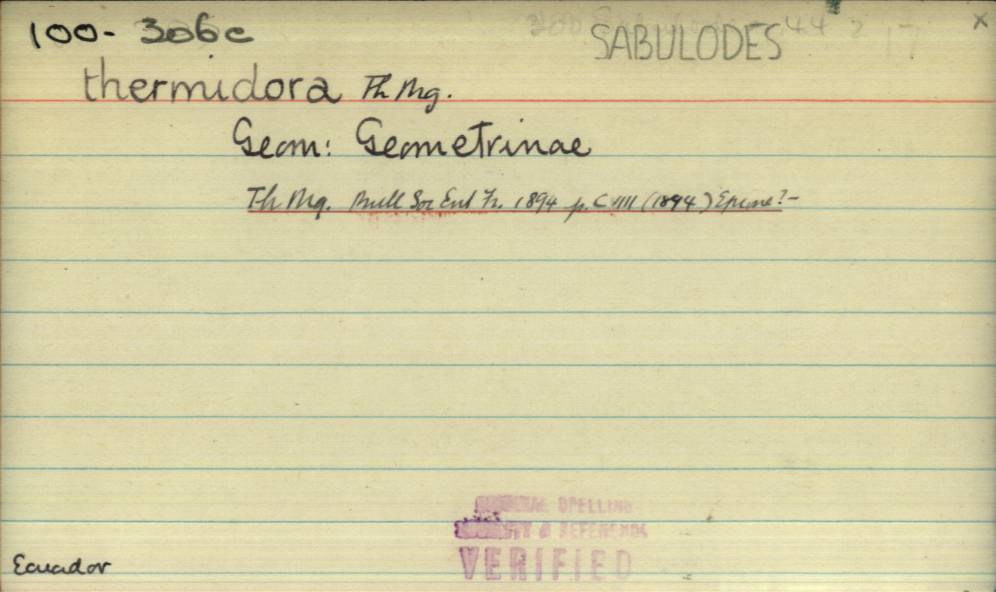 100- 306c SABULODES 44 ? 17 x
thermidora Th Mg.
Geom: Geometrinae
Th Mg. Bull Soc Ent Fr. 1894 p. CVIII (1894) Epione?-
SPELLING
& REFERENCE
VERIFIED
Ecuador